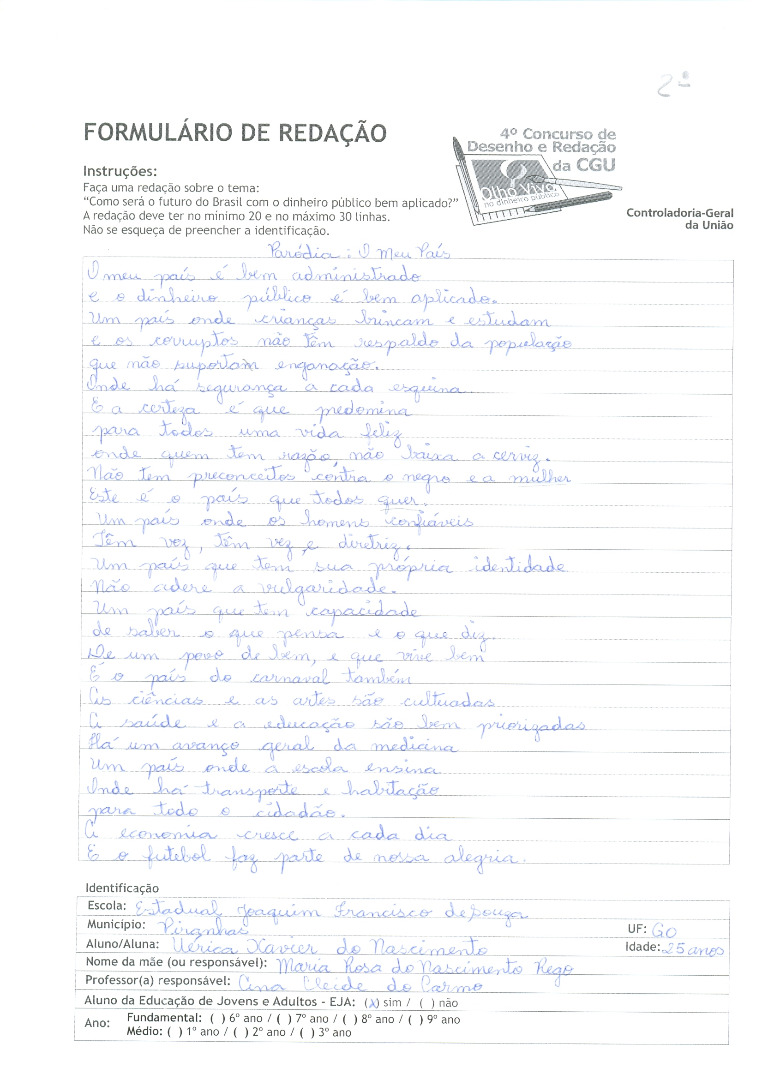 2ª
FORMULÁRIO DE REDAÇÃO
4º Concurso de
Desenho e Redação
da CGU
Olho Vivo
no dinheiro público
Controladoria-Geral
da União
Instruções:
Faça uma redação sobre o tema:
“Como será o futuro do Brasil com o dinheiro público bem aplicado?”
A redação deve ter no mínimo 20 e no máximo 30 linhas.
Não se esqueça de preencher a identificação.
Paródia: O Meu País
O meu país é bem administrado
e o dinheiro público é bem aplicado.
Um país onde crianças brincam e estudam
e os corruptos não têm respaldo da população
que não suportam enganação.
Onde há segurança a cada esquina
E a certeza é que predomina
para todos uma vida feliz
onde quem tem razão, não baixa a cerviz.
Não tem preconceitos contra o negro e a mulher
Este é o país que todos quer.
Um país onde os homens confiáveis
Têm voz, têm vez, e diretriz.
Um país que tem sua própria identidade
Não adere a vulgaridade.
Um país que tem capacidade
de saber o que pensa e o que diz.
De um povo de bem, e que vive bem
É o país do carnaval também
As ciências e as artes são cultuadas
A saúde e a educação são bem priorizadas
Há um avanço geral da medicina
Um país onde a escola ensina
Onde há transporte e habitação
para todo o cidadão.
A economia cresce a cada dia
E o futebol faz parte de nossa alegria.
Identificação
Escola: Estadual Joaquim Francisco de Souza
Município: Piranhas UF: GO
Aluno/Aluna: Uérica Xavier do Nascimento Idade: 25 anos
Nome da mãe (ou responsável): Maria Rosa do Nascimento Rego
Professor(a) responsável: Cina Cleide do Carmo
Aluno da Educação de Jovens e Adultos - EJA: (x) sim / ( ) não
Ano: Fundamental: ( ) 6º ano / ( ) 7º ano / ( ) 8º ano / ( ) 9º ano
Médio: ( ) 1º ano / ( ) 2º ano / ( ) 3º ano